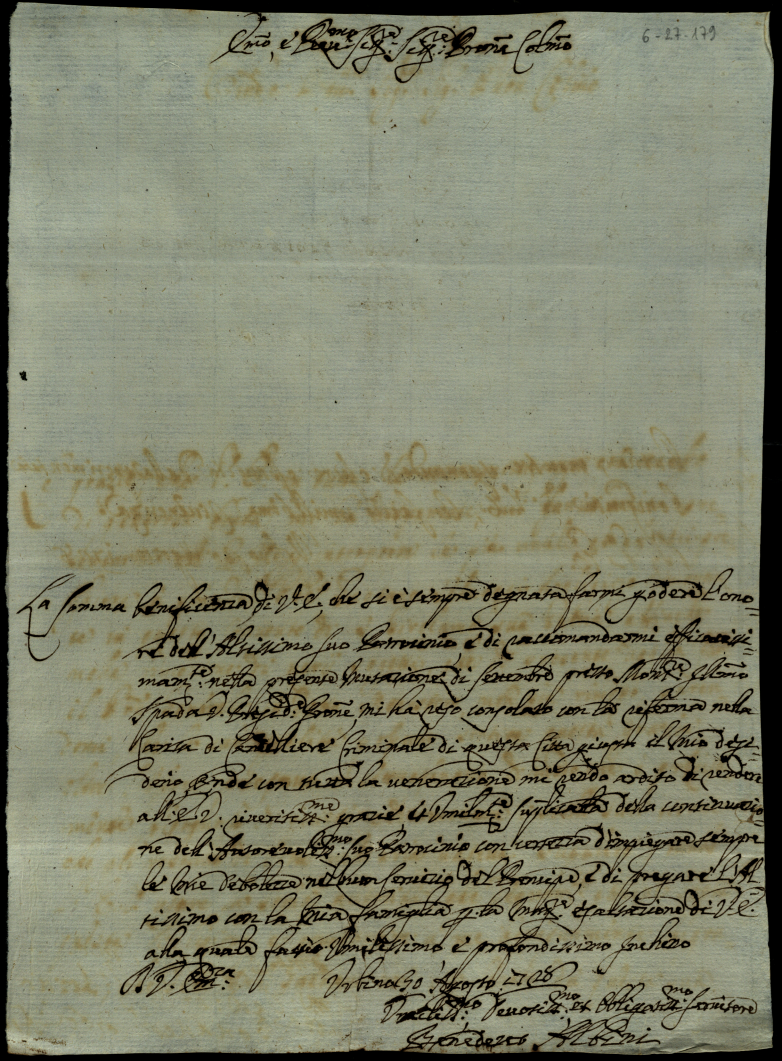 6-27-179
Em̃o, e Reu.mo Sig.r Sig.r Prõne Colm̃o
La somma beneficenza di V.E., che si è sempre degnata farmi godere l'ono=
re dell'Altissimo suo Patrocinio, e di raccomandarmi efficacissi=
mam.te nella presente Mutazione di Settembre presso Mons.re
Spada V. Presid.e Prõne, mi ha reso consolato con la rifferma nella
Carica di Cancelliere Criminale di questa Città giusta il mio desi=
derio, onde con tutta la venerazione mi rendo ardito di rendere
all'E.V. riveritiss.me grazie, et umilm.te supplicarla della continuazio=
ne dell'Autorevoliss.mo suo Patrocinio con certezza d'impiegare sempre
le mie debolezze nel buon servizio del Principe, e di pregare l'Al=
tissimo con la mia famiglia p. la esaltazione di V.E.
alla quale faccio umilissimo e profondissimo inchino
D.V. Em.za
Urbino 30 Agosto 1728
Umiliss.mo Deuotiss.mo et Obligatiss.mo Seruitore
Benedetto Albini